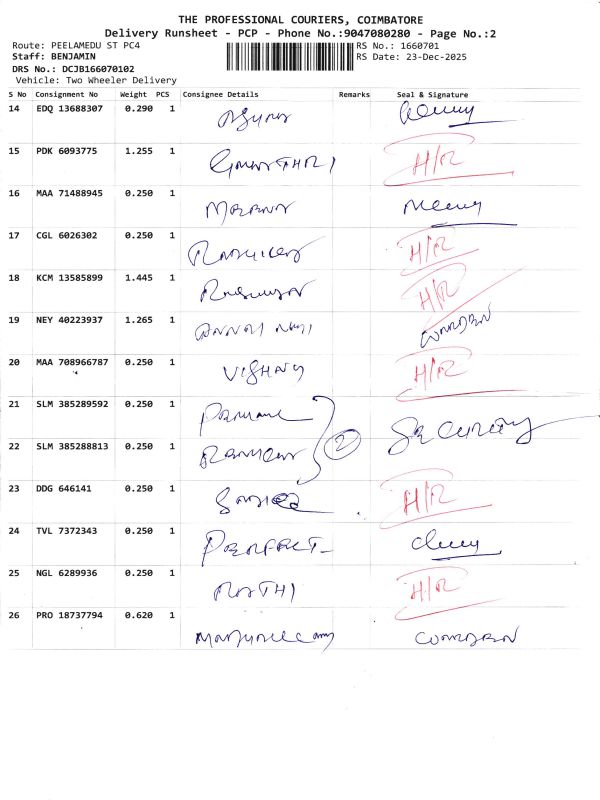 THE PROFESSIONAL COURIERS, COIMBATORE
Delivery Runsheet - PCP - Phone No.:9047080280 - Page No.:2
Route: PEELAMEDU ST PC4 RS No.: 1660701
Staff: BENJAMIN RS Date: 23-Dec-2025
DRS No.: DCJB166070102
Vehicle: Two Wheeler Delivery
S No Consignment No Weight PCS Consignee Details Remarks Seal & Signature
14 EDQ 13688307 0.290 1
15 PDK 6093775 1.255 1 H/R
16 MAA 71488945 0.250 1
17 CGL 6026302 0.250 1 H/R
18 KCM 13585899 1.445 1 H/R
19 NEY 40223937 1.265 1
20 MAA 708966787 0.250 1 VISHNU H/R
21 SLM 385289592 0.250 1
2 SECURITY
22 SLM 385288813 0.250 1
23 DDG 646141 0.250 1 H/R
24 TVL 7372343 0.250 1 PERFECT
25 NGL 6289936 0.250 1 H/R
26 PRO 18737794 0.620 1